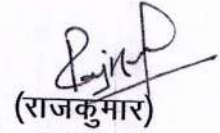 (राजकुमार)